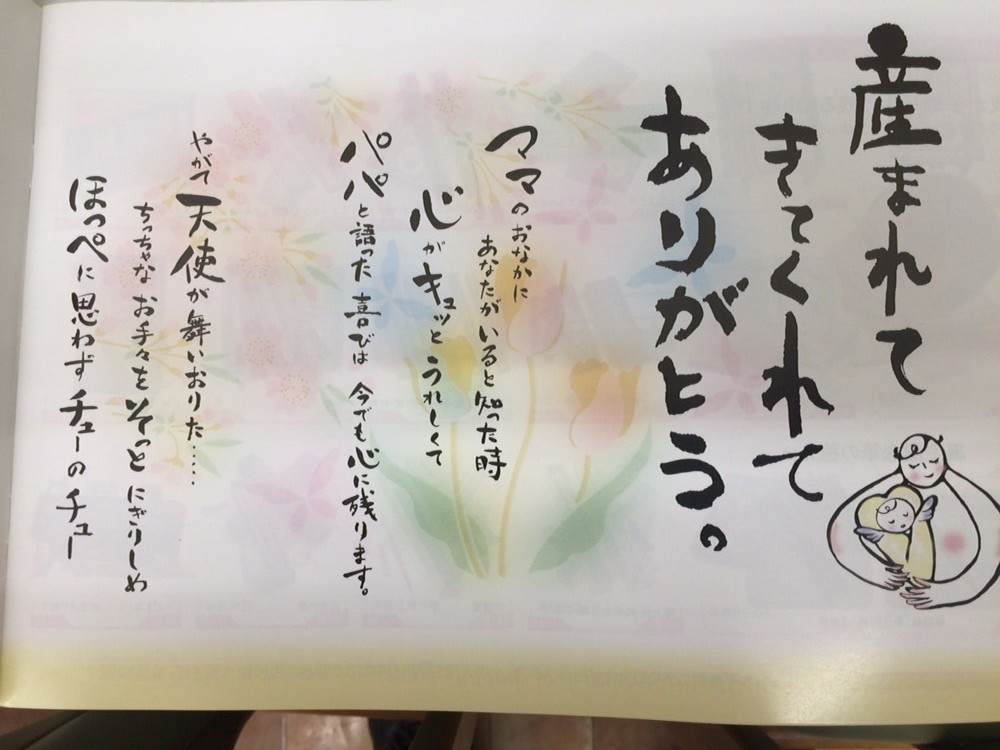 産まれて
きてくれて
ありがとう。
ママのおなかに
あなたがいると知った時
心がキュッとうれしくて
パパと語った喜びは今でも心に残ります。
やがて天使が舞いおりた……
ちっちゃなお手々をそっとにぎりしめ
ほっぺに思わずチューのチュー